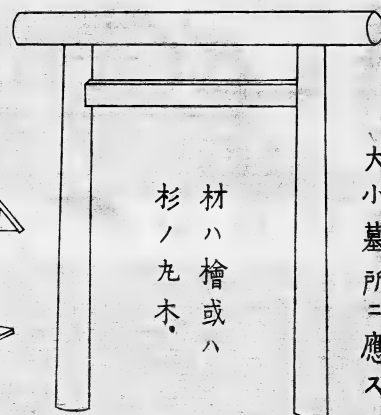 大小墓所ニ應ス
材ハ檜或ハ
杉ノ丸木.